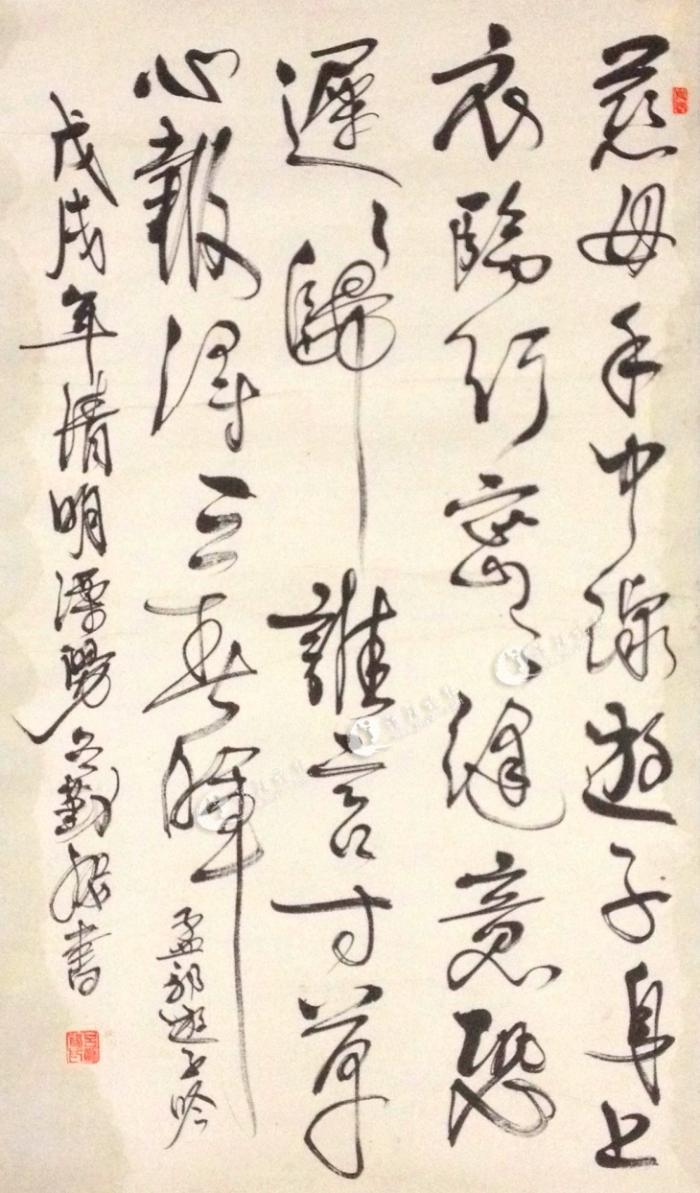 慈母手中線遊子身上
衣臨行密々縫意恐
遲々歸誰言寸草
心報得三春暉
孟郊遊子吟
戊戌年清明溧陽書